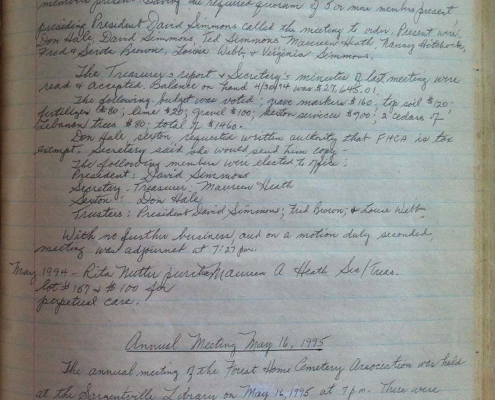 members present. Having the required quorum of 5 or more members present
presiding President David Simmons called the meeting to order. Present were:
Don Hale, David Simmons, Ted Simmons, Maureen Heath, Nancy
Fred & Serata Brown, Louise Webb & Virginia Simmons.
The Treasurer's report & Secretary's minutes of last meeting were
read & accepted. Balance on hand 4/30/94 was $27,645.01.
The following budget was voted: grave markers $160; top soil $120;
fertilizer $80; lime $20; gravel $100; sexton services $900; 2 cedars of
Lebanon trees $80; total of $1460.
Don Hale, sexton requested written authority that FHCA is tax
exempt. Secretary said she would send him copy.
The following members were elected to office:
President: David Simmons
Secretary-Treasurer: Maureen Heath
Sexton: Don Hale
Trustees: President David Simmons; Fred Brown; & Louise Webb.
With no further business, and on a motion duly seconded,
meeting was adjourned at 7:27 pm.
May 1994 - Rita Maureen A Heath Sec/Treas.
lot # 167 & $100 for
perpetual care.
Annual Meeting May 16, 1995
The annual meeting of the Forest Home Cemetery Association was held
at the Sargentville Library on May 16, 1995 at 7 p.m. There were